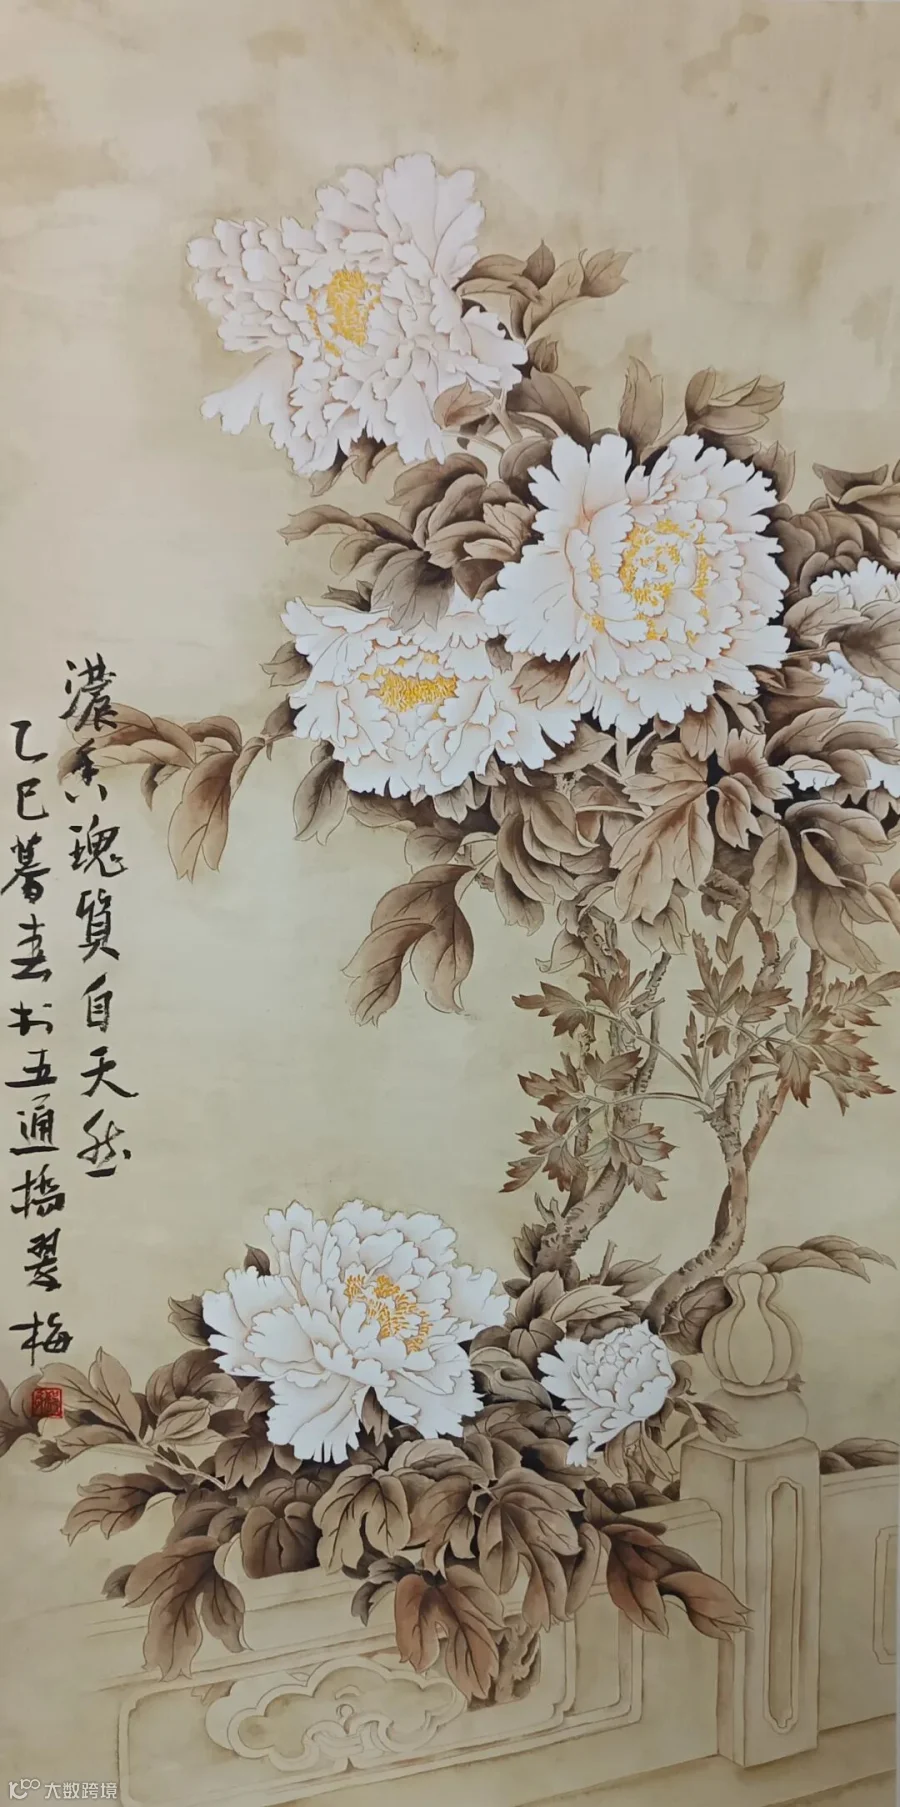 濃香瑰質自天然
乙巳暮春於五通橋翠梅
大数跨境